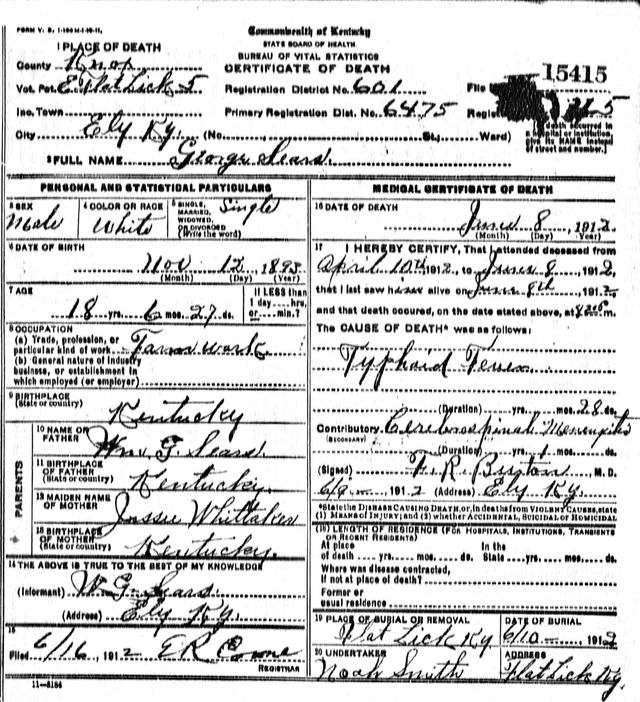 FORM V. S. 1-100M-1-19-11.
Commonwealth of Kentucky
STATE BOARD OF HEALTH.
BUREAU OF VITAL STATISTICS
CERTIFICATE OF DEATH
1 PLACE OF DEATH
County Knox
Vot. Pct. E Flat Lick 5
Registration District No. 601
File 15415
Inc. Town
Primary Registration Dist. No. 6475
Regist 5
City Ely Ky. (No. St.; Ward)
death occurred in a hospital or institution, give its NAME instead of street and number.]
2 FULL NAME George Sears.
PERSONAL AND STATISTICAL PARTICULARS
3 SEX Male
4 COLOR OR RACE White
5 SINGLE, MARRIED, WIDOWED, OR DIVORCED (Write the word) Single
6 DATE OF BIRTH
Nov 12, 1893
(Month) (Day) (Year)
7 AGE
18 yrs. 6 mos. 27 ds.
If LESS than 1 day ....hrs. or....min.?
8 OCCUPATION
(a) Trade, profession, or particular kind of work Farm work
(b) General nature of industry business, or establishment in which employed (or employer)
9 BIRTHPLACE
(State or country) Kentucky
PARENTS
10 NAME OF FATHER Wm G. Sears
11 BIRTHPLACE OF FATHER (State or country) Kentucky
12 MAIDEN NAME OF MOTHER Jussie Whittaker
13 BIRTHPLACE OF MOTHER (State or country) Kentucky
14 THE ABOVE IS TRUE TO THE BEST OF MY KNOWLEDGE
(Informant) W. G. Sears
(Address) Ely Ky.
15
Filed 6/16, 1912 ER
REGISTRAR
11-3184
MEDICAL CERTIFICATE OF DEATH
16 DATE OF DEATH
June 8, 1912
(Month) (Day) (Year)
17 I HEREBY CERTIFY, That I attended deceased from
April 10th 1912, to June 8, 1912,
that I last saw him alive on June 8th 1912,
and that death occured, on the date stated above, at m.
The CAUSE OF DEATH* was as follows:
Typhoid Fever
(Duration) yrs. mos. 28 ds.
Contributory Cerebrospinal Meningitis
(SECONDARY)
(Duration) yrs. 1 mos. ds.
(Signed) R. Burton, M. D.
6/9, 1912 (Address) Ely Ky.
*State the DISEASE CAUSING DEATH, or, in deaths from VIOLENT CAUSES, state (1) MEANS OF INJURY; and (2) whether ACCIDENTAL, SUICIDAL OR HOMICIDAL
(18) LENGTH OF RESIDENCE (FOR HOSPITALS, INSTITUTIONS, TRANSIENTS OR RECENT RESIDENTS)
At place of death yrs. mos. ds. In the State yrs. mos. ds.
Where was disease contracted, if not at place of death?
Former or usual residence
19 PLACE OF BURIAL OR REMOVAL Flat Lick Ky
DATE OF BURIAL 6/10 1912
20 UNDERTAKER Noah Smith
ADDRESS Flat Lick Ky.